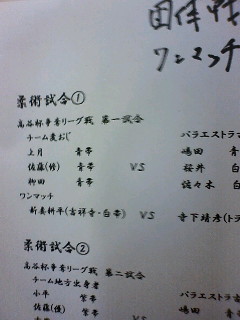 団体戦
ワンマッチ
柔術試合①
高谷杯争奪リーグ戦 第一試合
チーム麦おじ パラエストラ
上月 青帯 嶋田 青
佐藤(修) 青帯 VS 桜井 白
柳田 青帯 佐々木 白
ワンマッチ
新妻耕平(吉祥寺・白帯) VS 寺下靖彦(トラ
柔術試合②
高谷杯争奪リーグ戦 第二試合
チーム地方出身者 パラエストラ
小平 紫帯 嶋田 青
佐藤(優) 紫帯